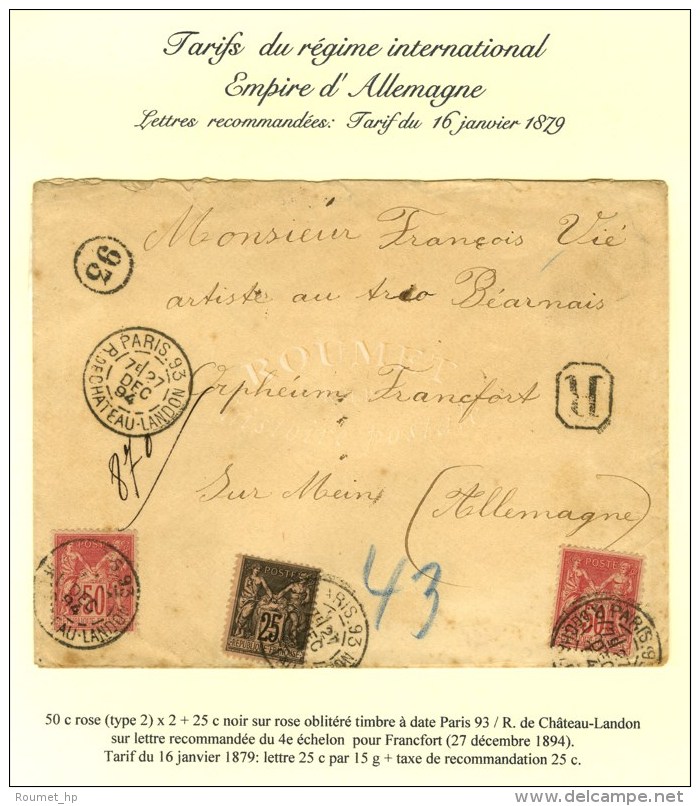 Tarifs du régime international
Empire d'Allemagne
Lettres recommandées: Tarif du 16 janvier 1879
Monsieur François Vié
93
artiste au trio Béarnais
PARIS. 93
7E 27
DEC
94
R. DE CHATEAU-LANDON
ROUMET
Orpheum Francfort
R
870
Sur Mein (Allemagne)
43
POSTE
50
POSTE
25
PARIS. 93
27
DEC
50 c rose (type 2) x 2 + 25 c noir sur rose oblitéré timbre à date Paris 93 / R. de Château-Landon
sur lettre recommandée du 4e échelon pour Francfort (27 décembre 1894).
Tarif du 16 janvier 1879: lettre 25 c par 15 g + taxe de recommandation 25 c.
Roumet_hp
delcampe.net